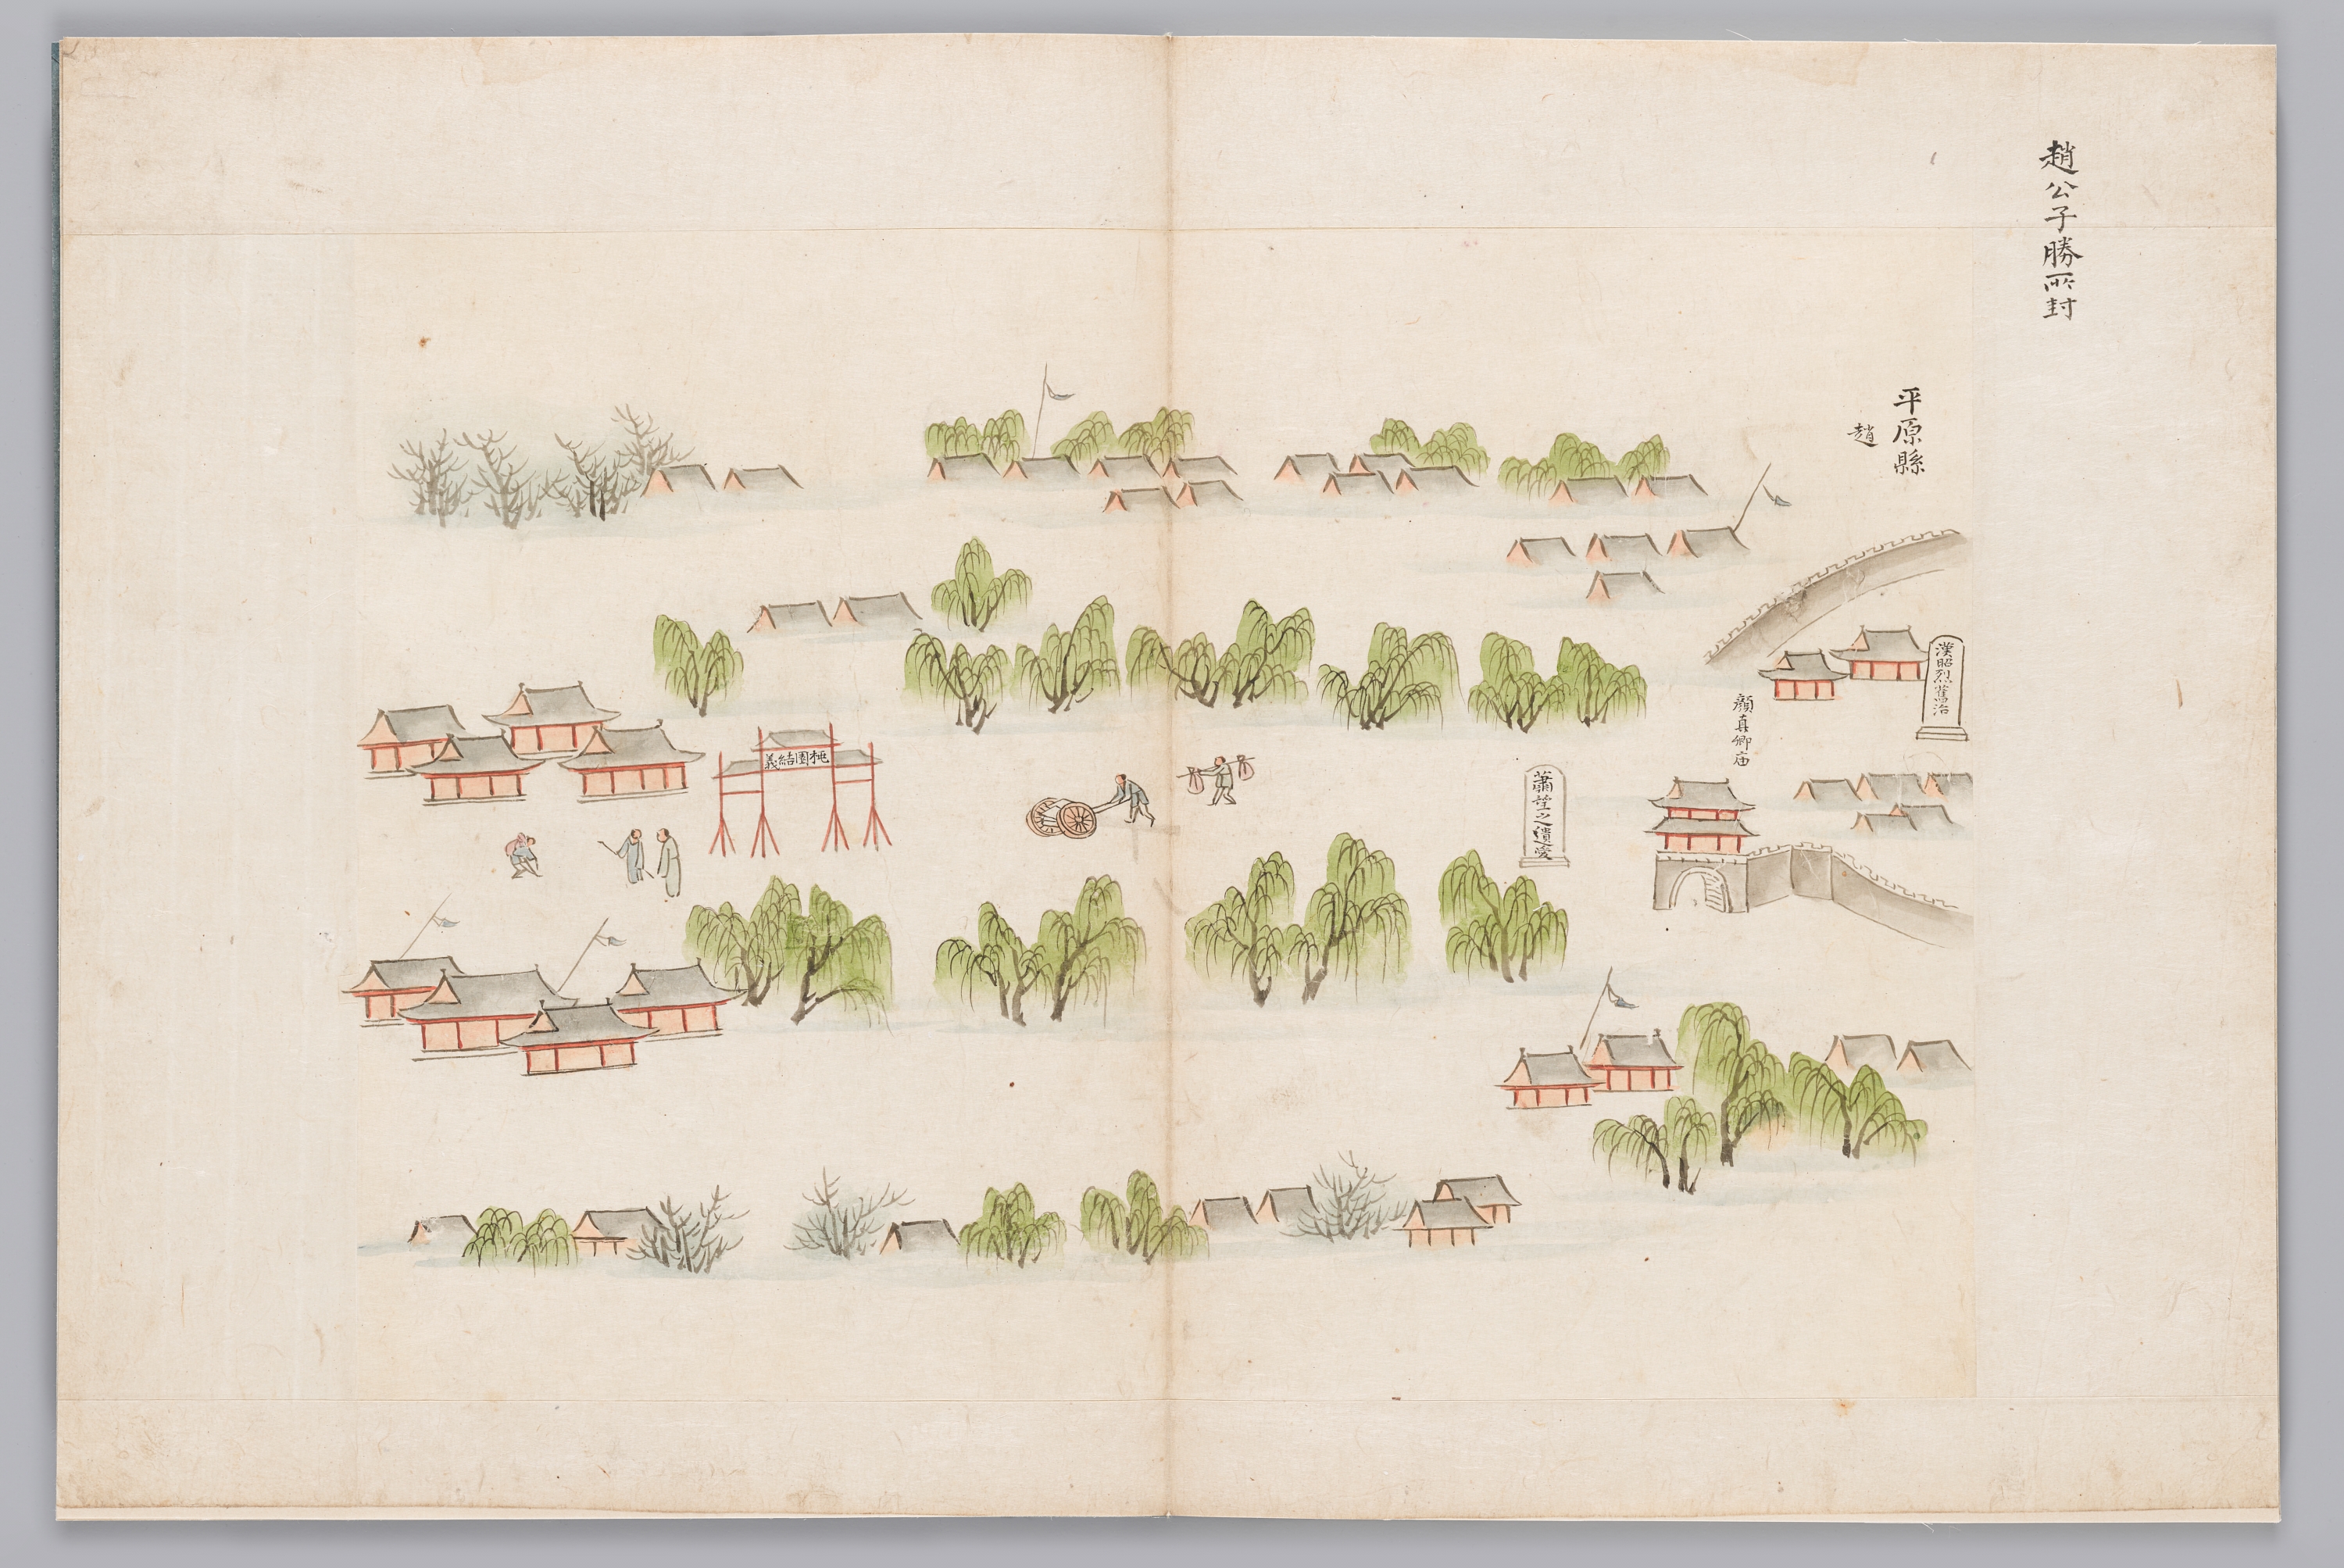 趙公子勝所封
平原縣
趙
漢昭烈舊治
顔真卿庙
蕭望之遺愛
桃園結義